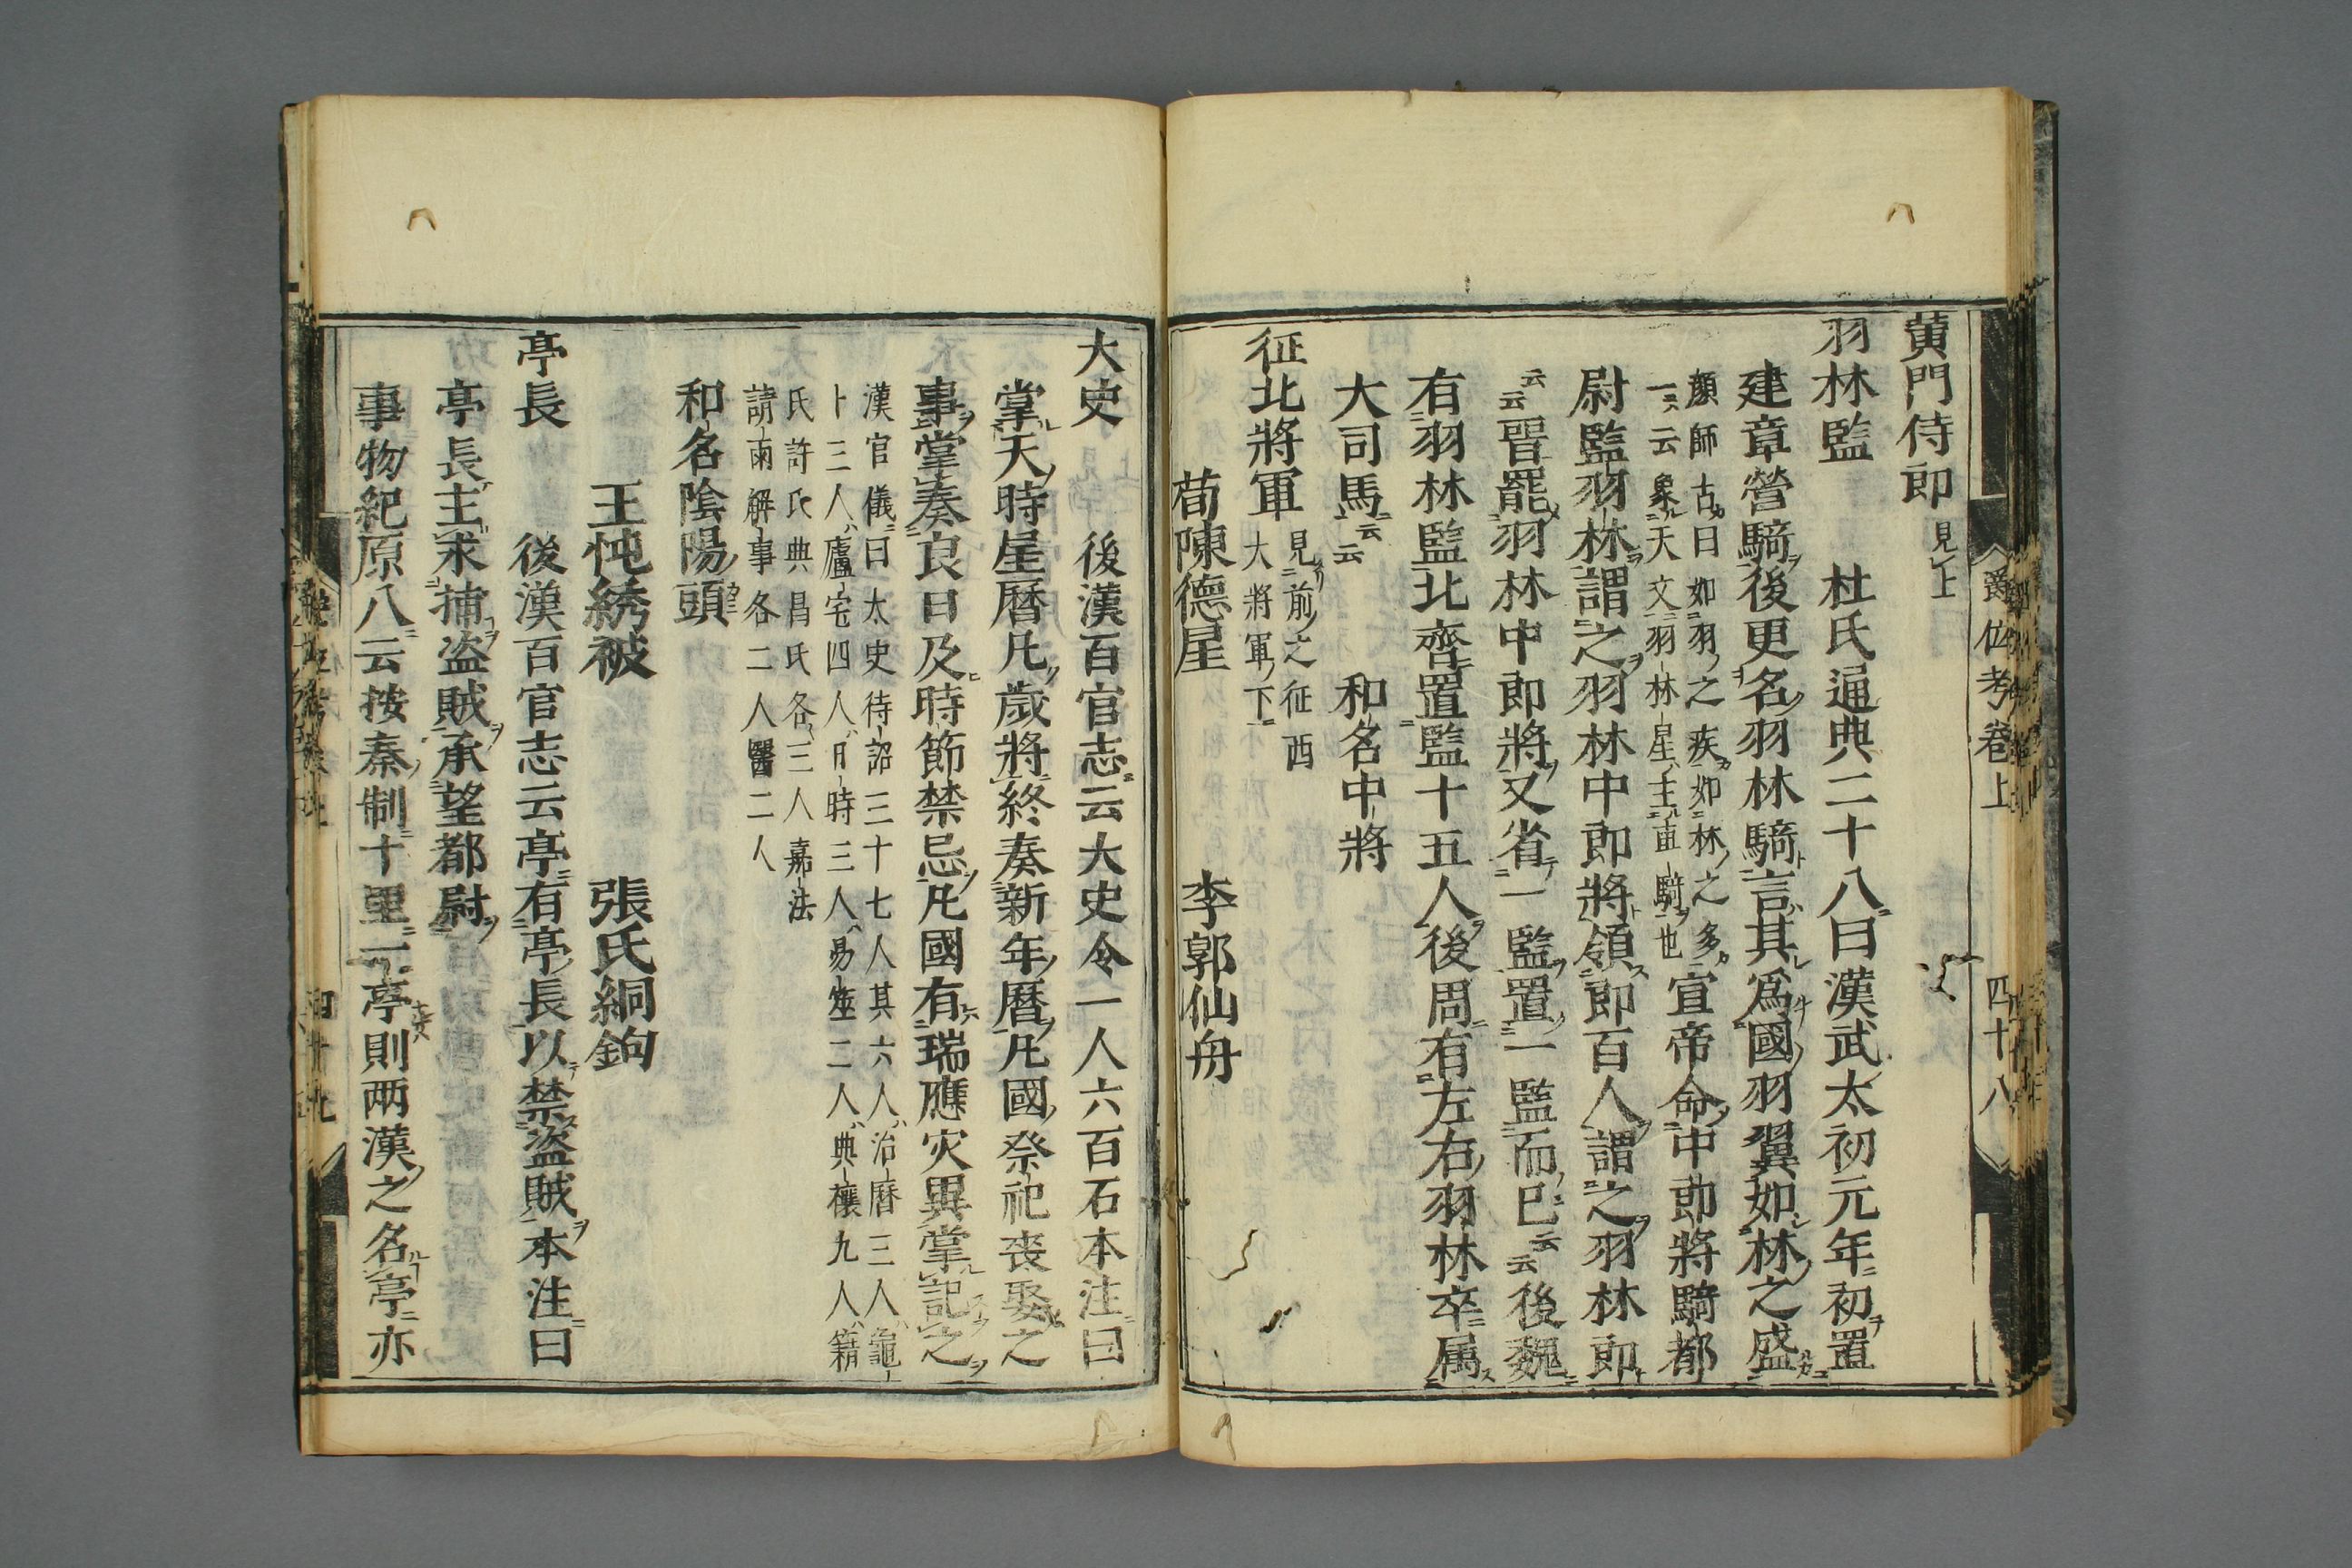 黄門侍郎 見上
羽林監 杜氏通典二十八曰漢武太初元年初置
建章營騎後更名羽林騎言其爲國羽翼如林之盛
顔師古曰如羽之疾如林之多
一云象天文羽林星主車騎也
宣帝命中郎將騎都
尉監羽林謂之羽林中郎將領郎百人謂之羽林郎
云云晋罷羽林中郎將又省一監置一監而已云云後魏
有羽林監北齊置監十五人後周有左右羽林卒属
大司馬云云 和名中將
征北將軍 見前之征西
大將軍下
荀陳德星 李郭仙舟
爵位考卷上 四十八
大史 後漢百官志云大史令一人六百石本注曰
掌天時星曆凡歲將終奏新年曆凡國祭祀喪娶之
事掌奏良日及時節禁忌凡國有瑞應灾異掌記之
漢官儀曰太史待詔三十七人其六人治曆三人龜
卜三人廬宅四人日時三人易筮二人典禳九人籍
氏許氏典昌氏各三人嘉法
請雨解事各二人醫二人
和名陰陽頭
王忳綉被 張氏銅鉤
亭長 後漢百官志云亭有亭長以禁盗賊本注曰
亭長主求捕盗賊承望都尉
事物紀原八云按秦制十里一亭則两漢之名亭亦